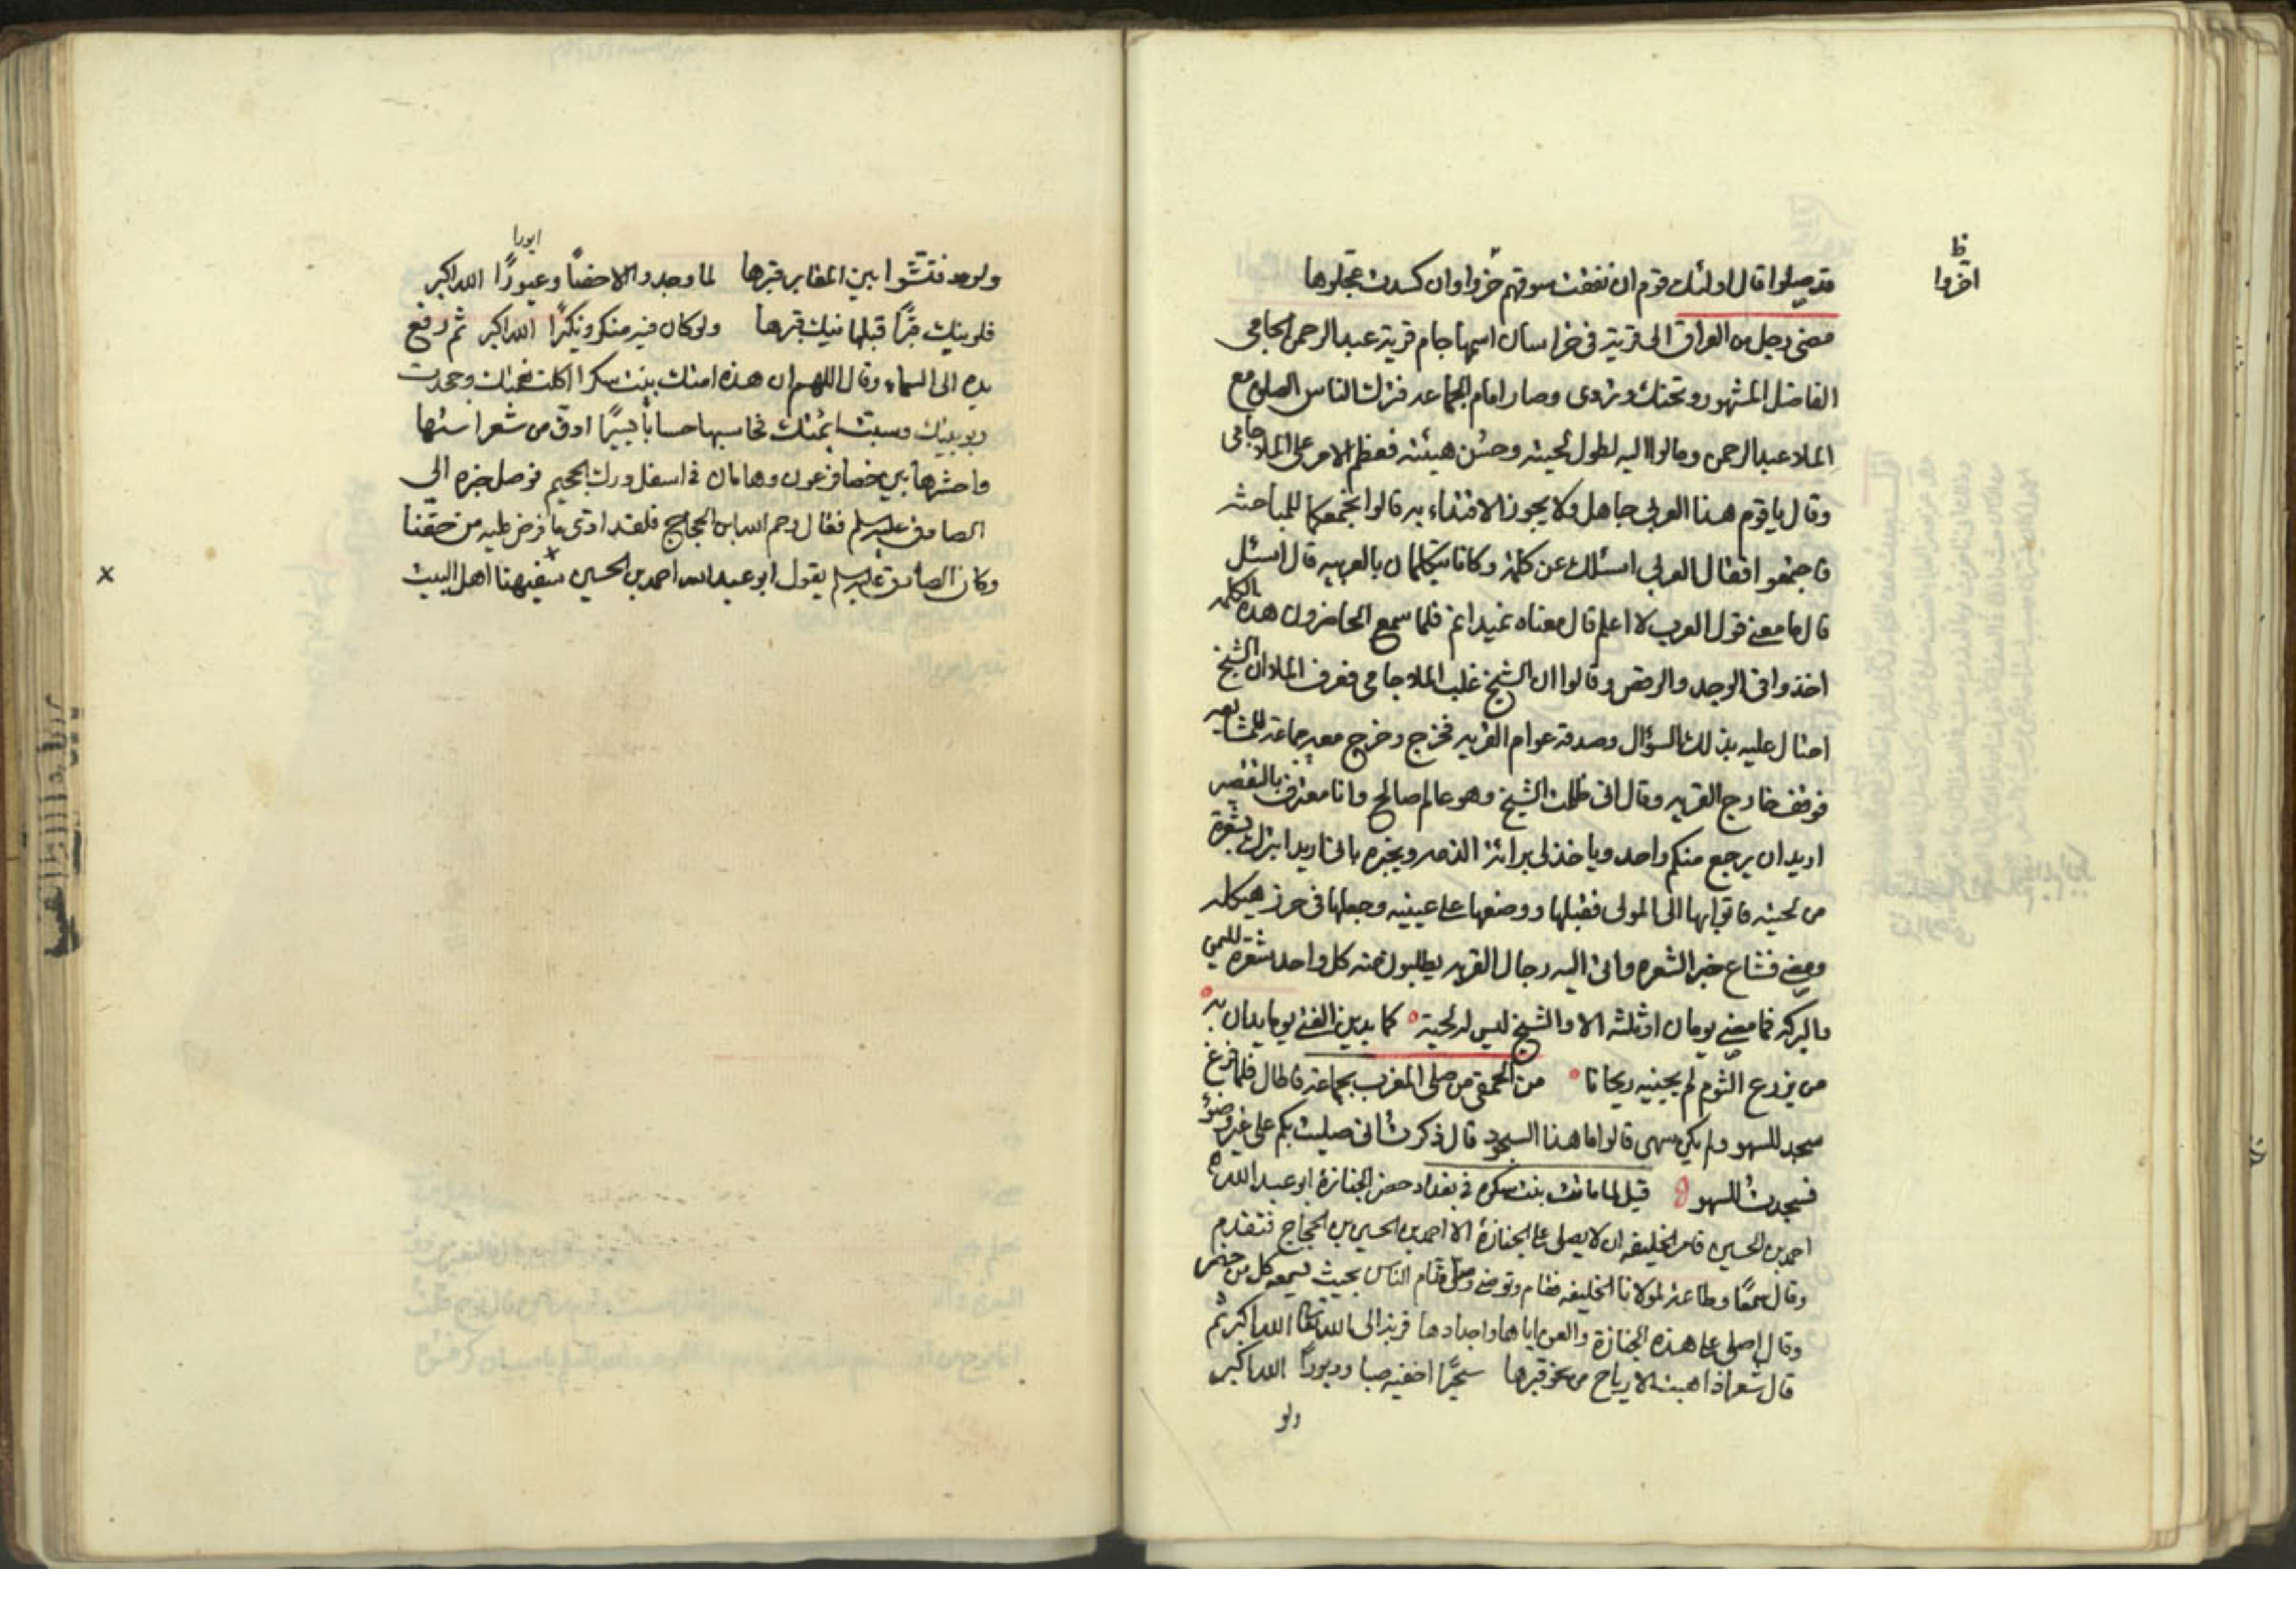 قد صلوا قال اولئك قوم ان نفقت سوقهم خروا وان كسدت عجلوها
ظ
اخروا
مضى رجل من العراق الى قرية في خراسان اسمها جام قرية عبد الرحمن الجامي
الفاضل المشهور وتحنك وتردى وصار امام الجماعه فترك الناس الصلوة مع
الملا عبد الرحمن ومالوا اليه لطول لحيته وحسن هيئته فعظم الامر على الملا جامى
وقال يا قوم هذا العربي جاهل ولا يجوز الاقتداء به قالوا نجمعكما للمباحثه
فاجتمعوا فقال العربي اسئلك عن كلمة وكانا يتكلمان بالعربيه قال اسئل
قال ما معنى قول العرب لا اعلم قال معناه نميدانم فلما سمع الحاضرون هذه الكلمه
اخذوا في الوجد والرقص وقالوا ان الشيخ غلب الملا جامى فعرف الملا ان الشيخ
احتال عليه بذلك السؤال وصدقه عوام القريه فخرج وخرج معه جماعة للمشايعه
فوقف خارج القريه وقال اني ظلمت الشيخ وهو عالم صالح وانا معترف بالتقصير
اريد ان يرجع منكم واحد وياخذ لي برائة الذمه ويخبره باني اريد اتبرك بشعرة
من لحيته فاتوا بها الى المولى فقبلها ووضعها على عينيه وجعلها في حرز هيكله
ومضى فشاع خبر الشعره واتى اليه رجال القريه يطلبون منه كل واحد شعره لليمن
والبركه فما مضى يومان او ثلثه الا والشيخ ليس له لحية كما يدين الفتى يوما يدان به
من يزرع الثوم لم يجنيه ريحانا من الحمقى من صلى المغرب بجماعة فاطال فلما فرغ
سجد للسهو ولم يكن سهى قالوا ما هذا السجود قال ذكرت اني صليت بكم على غير وضوء
فسجدت للسهو قيل لما ماتت بنت سكره في بغداد حضر الجنازة ابو عبد الله
احمد بن الحسين فامر الخليفه ان لا يصلى على الجنازة الا احمد بن الحسين بن الحجاج فتقدم
وقال سمعا وطاعة لمولانا الخليفه فقام وتوضى وصلى قدام الناس بحيث يسمعه كل من حضر
وقال اصلى على هذه الجنازة والعن اباها واجدادها قربة الى الله تعالى الله اكبر ثم
قال شعر اذا هبت الارياح من نحو قبرها اخفيه صبا ودبورا الله اكبر
ولو
ولو قد فتشوا بين المقابر قبرها لما وجدوا الا وعيورا الله اكبر
ايورا
قبلها قبرها ولو كان فيه منكر ونكيرا الله اكبر ثم رفع
يده الى السماء وقال اللهم ان هذه امتك بنت سكرا اكلت نعمتك وجحدت
ربوبيتك وسبت ائمتك فحاسبها حسابا يسيرا ادق من شعر استها
واحشرها بين فرعون وهامان في اسفل درك الجحيم فوصل خبره الى
الصادق عليه السلم فقال رحم الله ابن الحجاج فلقد ادى ما فرض عليه من حقنا
وكان الصادق عليه السلم يقول ابو عبد الله احمد بن الحسين سفيهنا اهل البيت